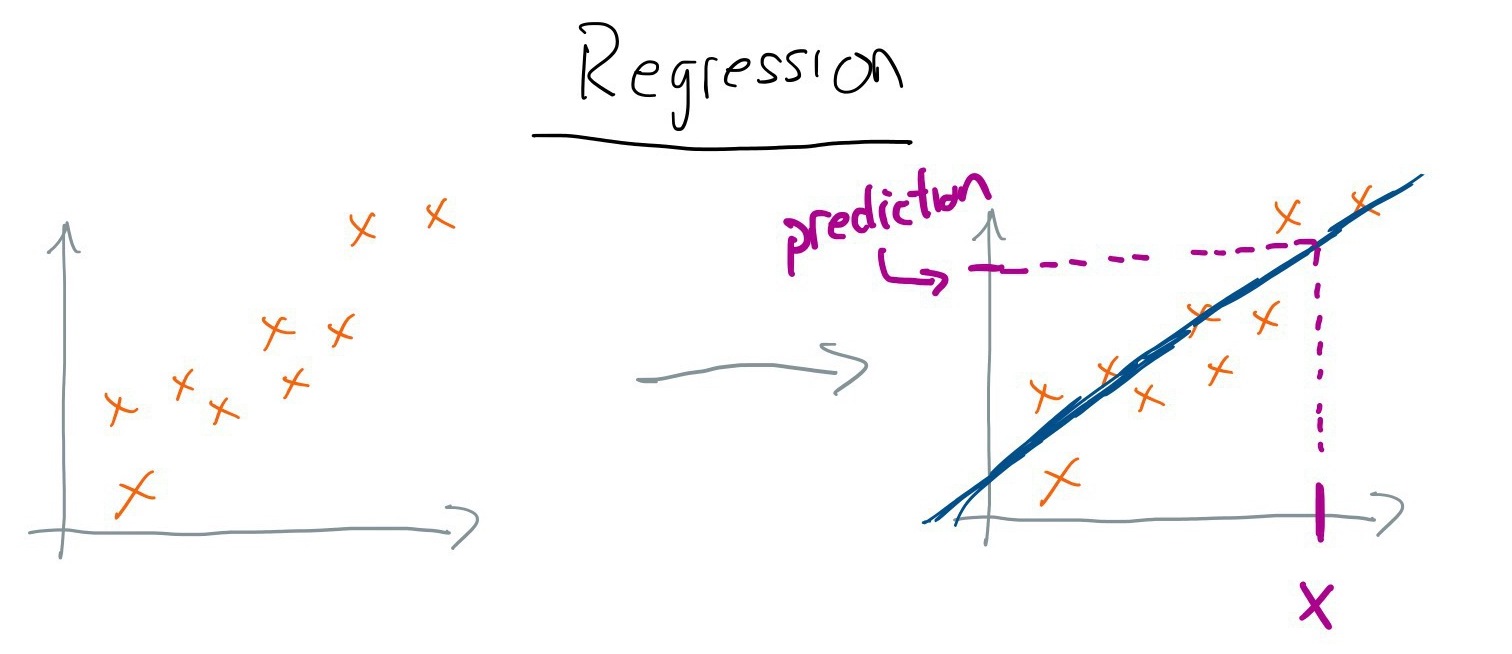 Regression
prediction
x